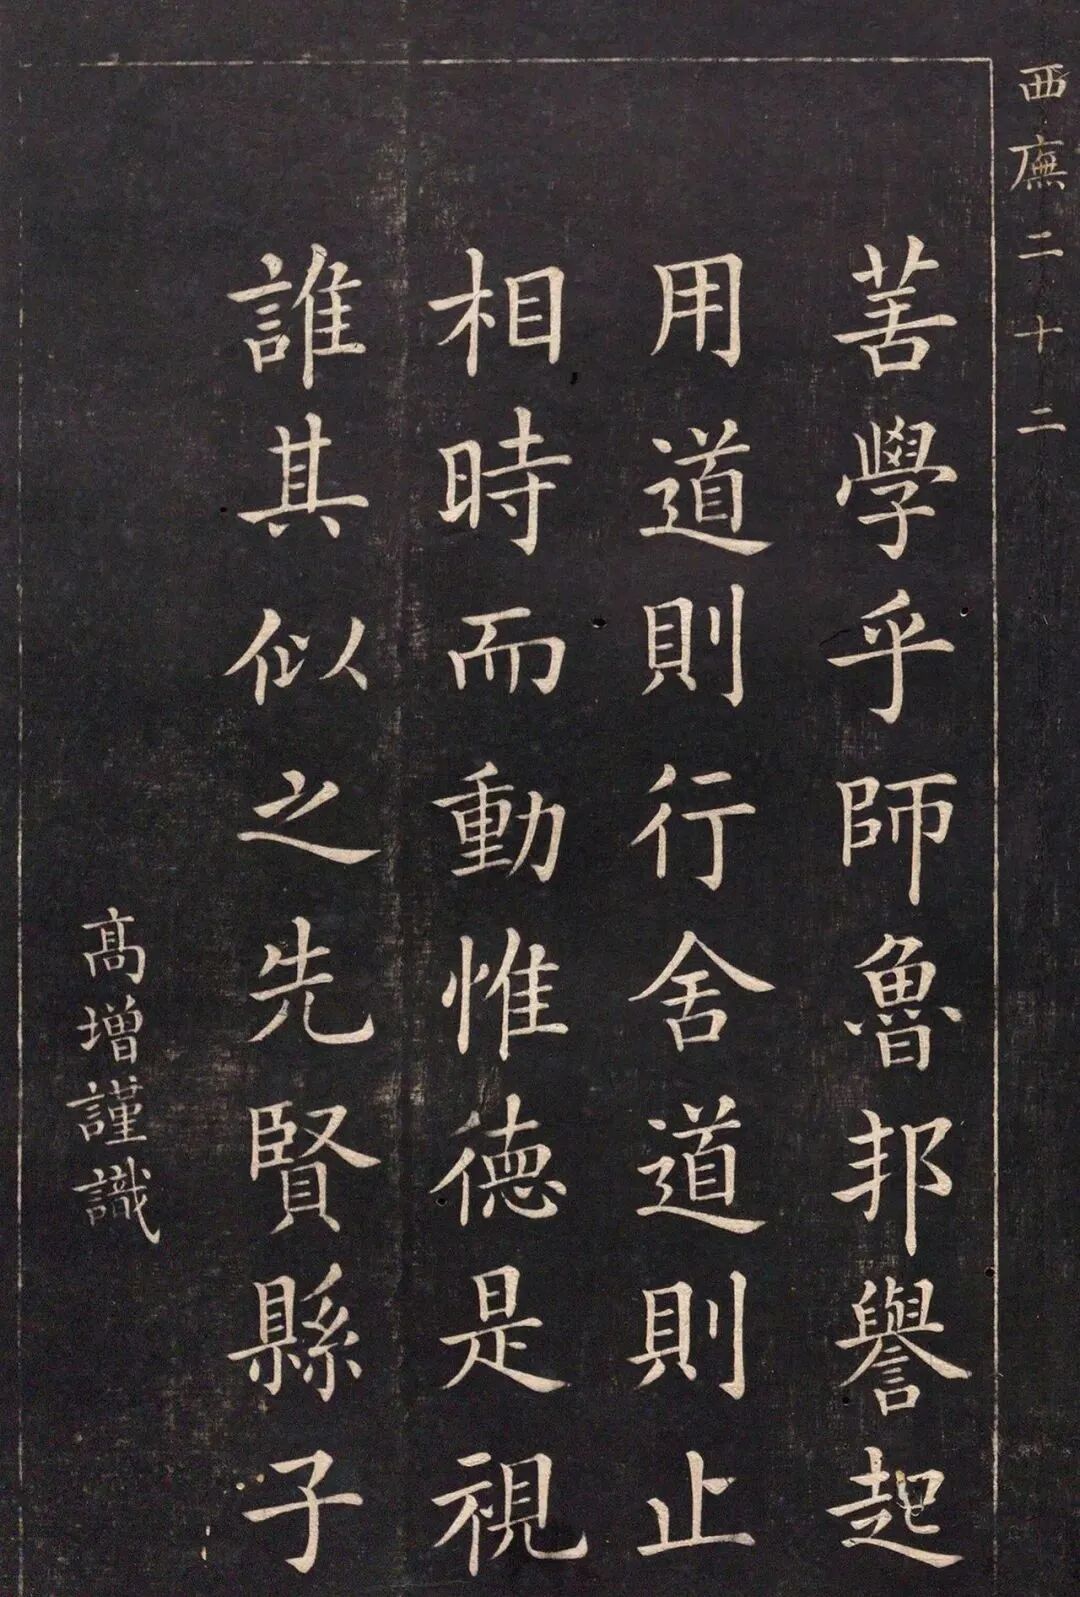 西廡二十二
善學乎師魯邦譽起
用道則行舍道則止
相時而動惟德是視
誰其似之先賢縣子
高增謹識